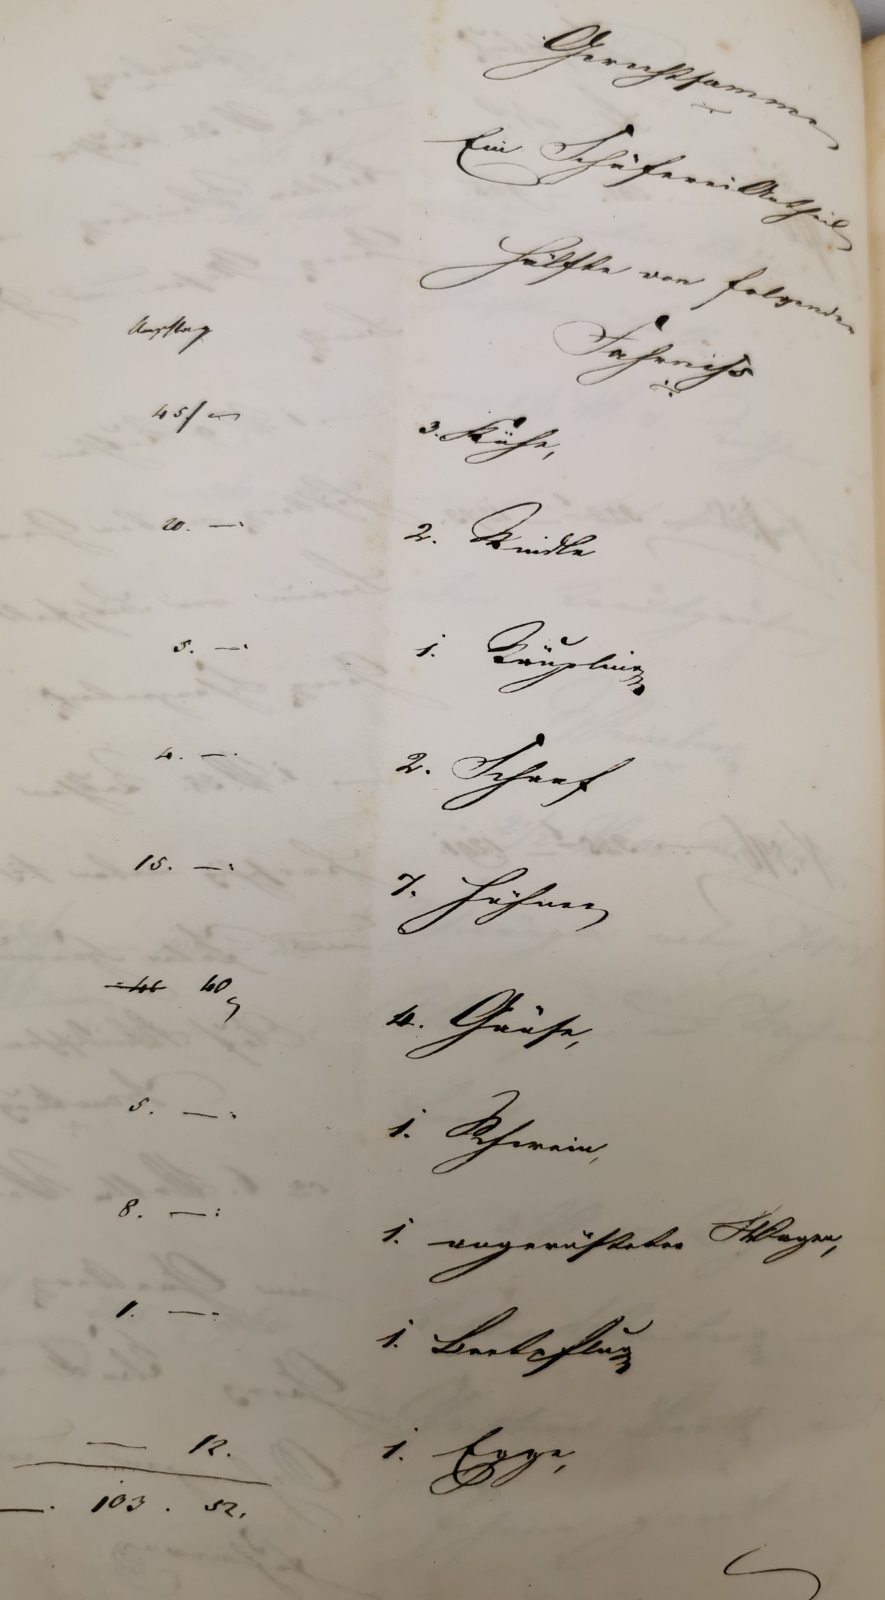 Gerechtsamme
Ein Schäferei Antheil
Hälfte von folgender
Fahrniß
Anschlag
45 f — 3. Kühe,
20. — 2. Rindle
5. — 1. Läufling
4. — 2. Schaaf
15. — 7. Hühner
40 4. Gänse,
5. — 1. Schwein,
8. — 1. angerüsteter Wagen,
1. — 1. Beetpflug
— 12. 1. Egge,
—. 103. 52.